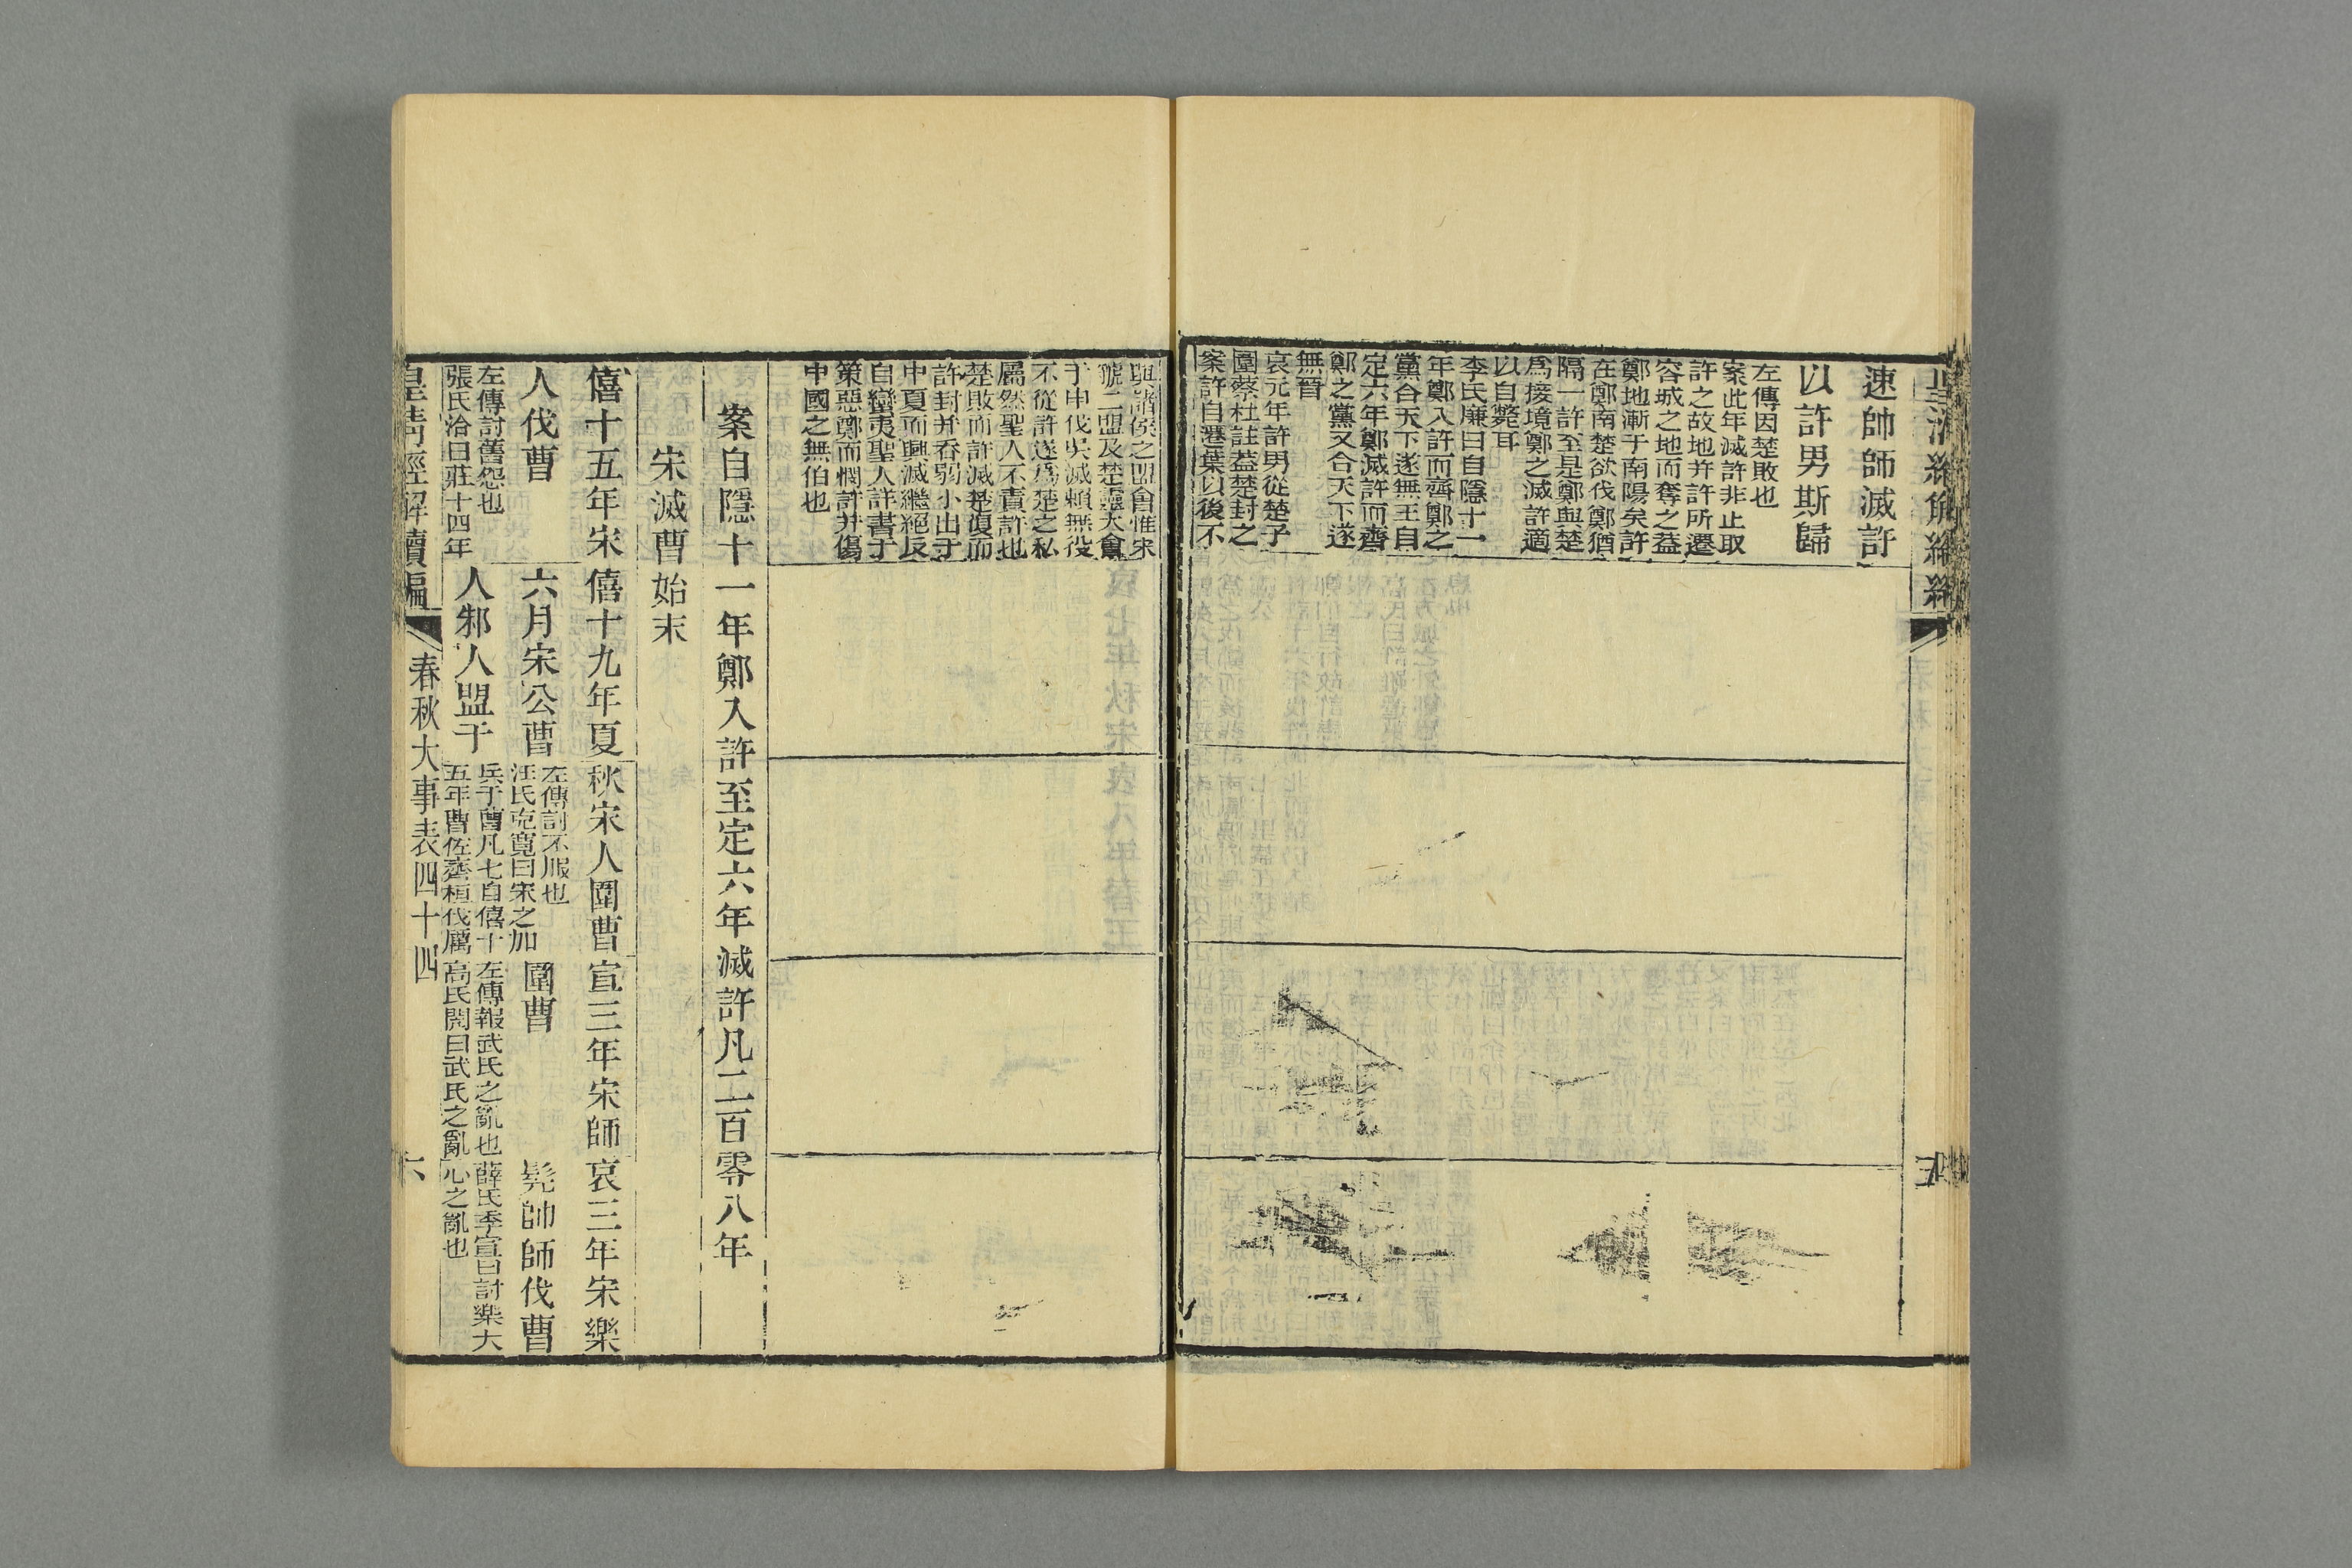 速帥師滅許
以許男斯歸
左傳因楚敗也
案此年滅許非止取
許之故地并許所遷
容城之地而奪之蓋
鄭地漸于南陽矣許
在鄭南楚欲伐鄭猶
隔一許至是鄭與楚
爲接境鄭之滅許適
以自斃耳
李氏廉曰自隱十一
年鄭入許而齊鄭之
黨合天下遂無王自
定六年鄭滅許而齊
鄭之黨又合天下遂
無晉
哀元年許男從楚子
圍蔡杜註蓋楚封之
案許自遷葉以後不
與諸侯之盟會惟宋
虢二盟及楚靈大會
于申伐吳滅賴無役
不從許遂爲楚之私
屬然聖人不責許也
楚敗而許滅楚復而
許封并吞弱小出于
中夏而興滅繼絕反
自蠻夷聖人詳書于
策惡鄭而憫許并傷
中國之無伯也
案自隱十一年鄭入許至定六年滅許凡二百零八年
宋滅曹始末
僖十五年宋
人伐曹
左傳討舊怨也
張氏洽曰莊十四年
僖十九年夏
六月宋公曹
人邾人盟于
秋宋人圍曹
左傳討不服也
汪氏克寬曰宋之加
兵于曹凡七自僖十
五年曹佐齊桓伐厲
宣三年宋師
圍曹
左傳報武氏之亂也
高氏閌曰武氏之亂
哀三年宋樂
髡帥師伐曹
薛氏季宣曰討樂大
心之亂也
皇清經解續編
春秋大事表四十四
六